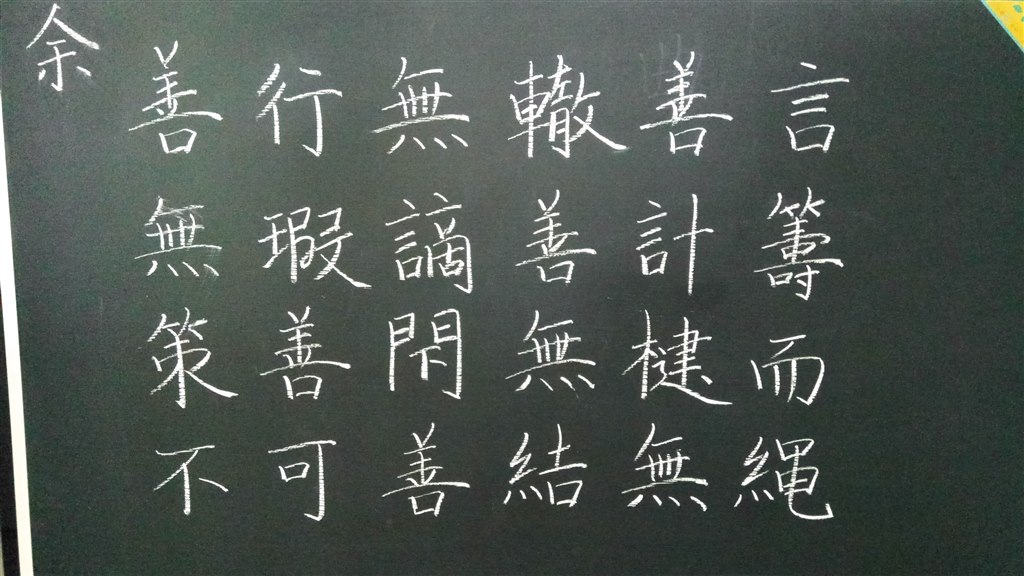 余
善行無轍善言
無瑕謫善計籌
策善閇無楗而
不可善結無縄